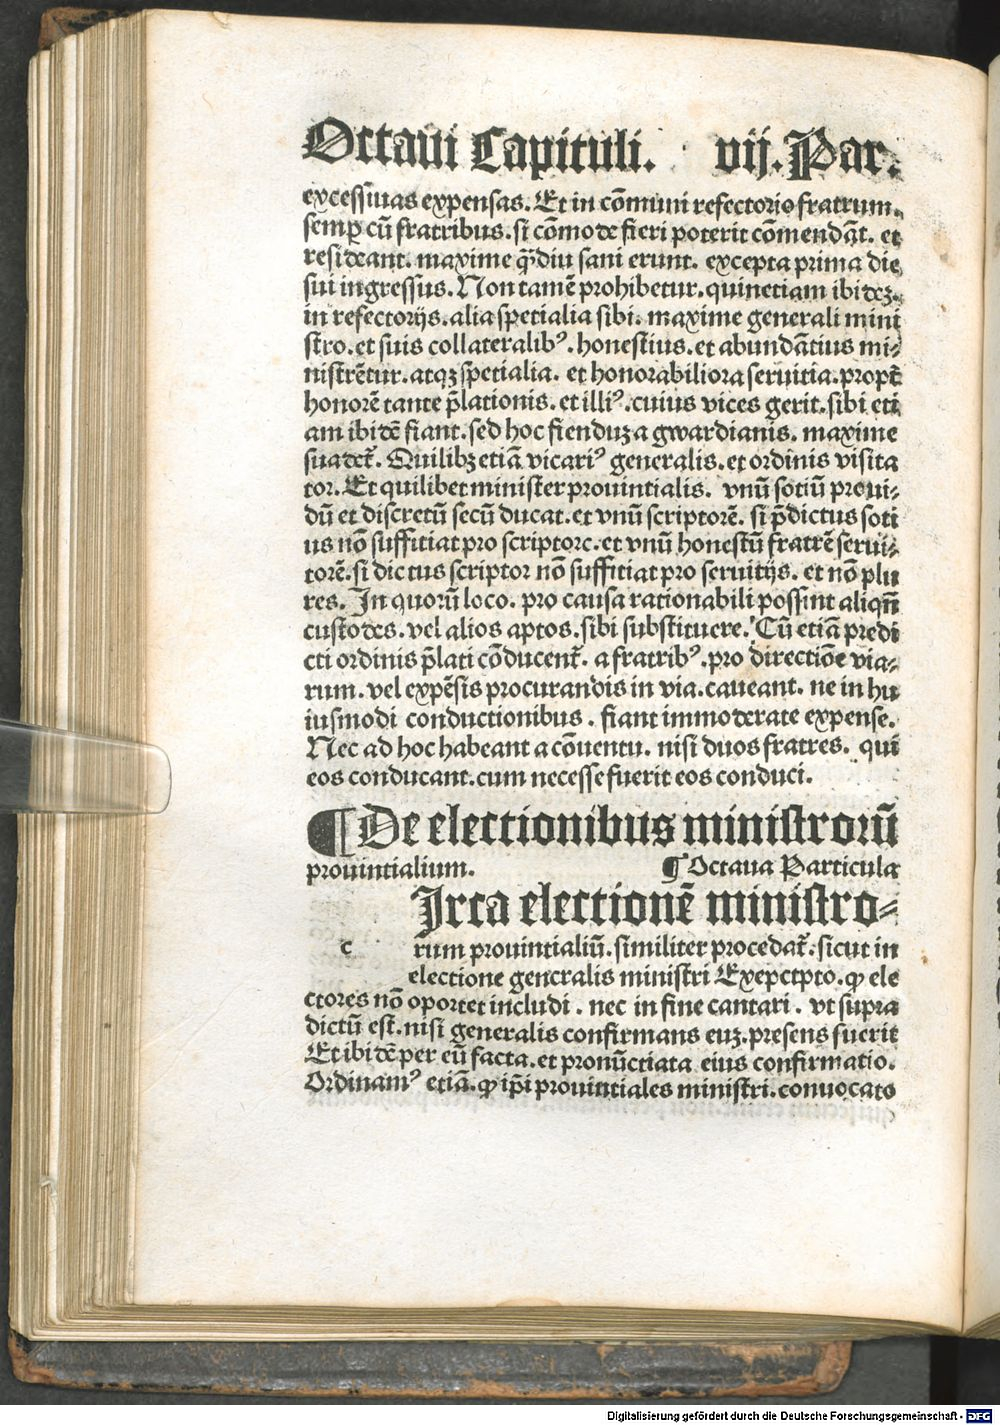 Octaui Capituli. vij. Par.
excessiuas expensas. Et in cōmuni refectorio fratrum.
semꝑ cū fratribus. si cōmode fieri poterit cōmendāt. et
resideant. maxime qͣ̄diu sani erunt. excepta prima die
sui ingressus. Non tamē prohibetur. quinetiam ibidez.
in refectorijs. alia spetialia sibi. maxime generali mini
stro. et suis collateralibꝰ. honestius. et abundātius mi⸗
nistrētur. atqꝫ spetialia. et honorabiliora seruitia. propt̄
honorē tante p̄lationis. et illiꝰ. cuius vices gerit. sibi eti
am ibidē fiant. sed hoc fienduꝫ a gwardianis. maxime
suadet᷑. Quilibꝫ etiā vicariꝰ generalis. et ordinis visita
tor. Et quilibet minister prouintialis. vnū sotiū proui⸗
dū et discretū secū ducat. et vnū scriptorē. si p̄dictus soti
us nō suffitiat pro scriptore. et vnū honestū fratrē serui⸗
torē. si dictus scriptor nō suffitiat pro seruitijs. et nō plu
res. In quorū loco. pro causa rationabili possint aliqn̄
custodes. vel alios aptos. sibi substituere. Cū etiā predi
cti ordinis p̄lati cōducent᷑. a fratribꝰ. pro directiōe via⸗
rum. vel expēsis procurandis in via. caueant. ne in hu
iusmodi conductionibus. fiant immoderate expense.
Nec ad hoc habeant a cōuentu. nisi duos fratres. qui
eos conducant. cum necesse fuerit eos conduci.
¶ De electionibus ministrorū
prouintialium. ¶ Octaua Particula
c Irca electionē ministro⸗
rum prouintialiū. similiter procedat᷑. sicut in
electione generalis ministri Exepctpto. ꝙ ele
ctores nō oportet includi. nec in fine cantari. vt supra
dictū est. nisi generalis confirmans euꝫ. presens fuerit
Et ibidē per eū facta. et pronūctiata eius confirmatio.
Ordinamꝰ etiā. ꝙ ip̄i prouintiales ministri. conuocato
Digitalisierung gefördert durch die Deutsche Forschungsgemeinschaft - DFG